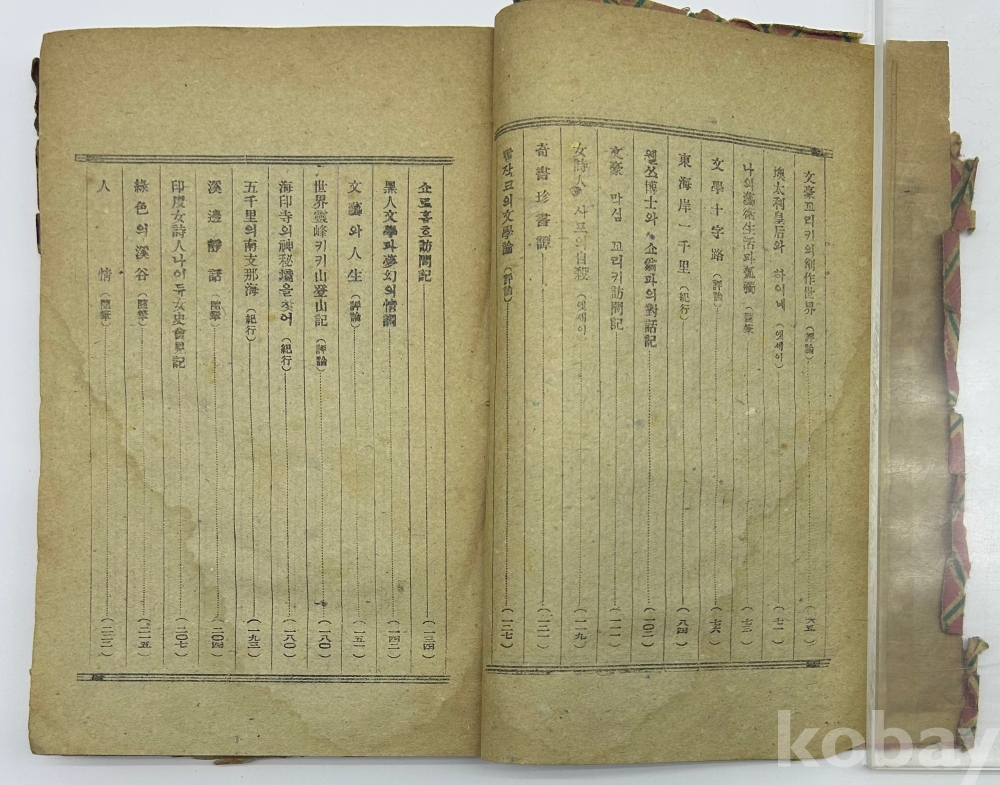 文豪꼬리키의創作世界 (評論) (六五)
墺太利皇后와 하이네 (엣세이) (七一)
나의藝術生活과孤獨 (隨筆 (七三)
文學十字路 (評論) (七六)
東海岸一千里 (紀行) (八四)
웰쓰博士와 쇼翁과의對話記 (一〇三)
文豪 막심 꼬리키訪問記 (一一一)
女詩人 사포의自殺 (엣세이) (一一九)
奇書珍書譚 (一二一)
의文學論 (評論) (一二七)
쇼로홉흐訪問記 (一三四)
黑人文學과夢幻의情調 (一四二)
文藝와人生 (評論) (一五一)
世界靈峰키키山登山記 (評論) (一八〇)
海印寺의神秘境을찾어 (紀行) (一八〇)
五千里의南支那海 (紀行) (一九三)
溪邊靜話 (隨筆) (二〇四)
印度女詩人나이두女史會見記 (二〇七)
綠色의溪谷 (隨筆) (二一五)
人情 (隨筆) (二二二)
kobay